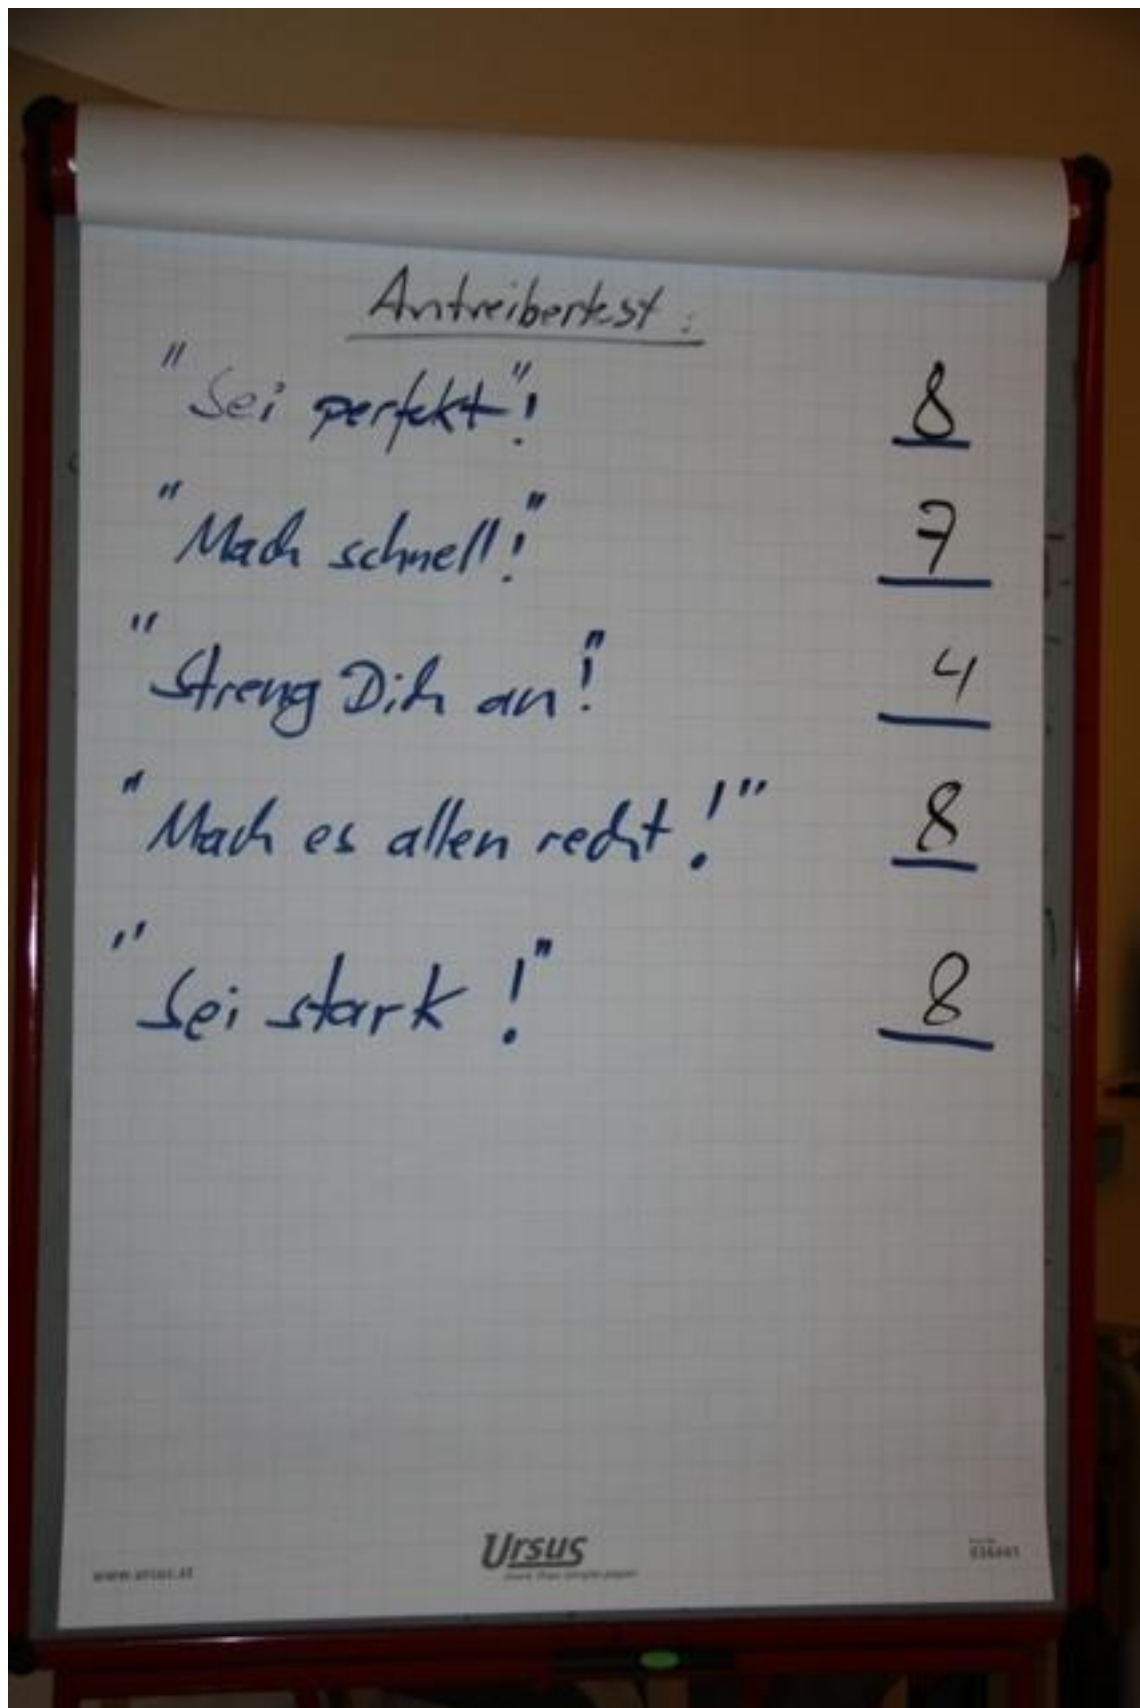 Antreibertest:
"Sei perfekt"! 8
"Mach schnell!" 7
"Streng Dich an!" 4
"Mach es allen recht!" 8
"Sei stark!" 8
Ursus
more than simple paper
www.ursus.at